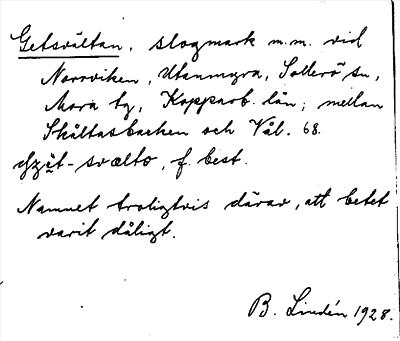 Getsvältan, slogmark m.m. vid
Norrviken, Utanmyra, Sollerö sn,
Mora tg, Kopparb. län; mellan
Skältasbacken och Vål. 68.
-svælto, f. best.
Namnet troligtvis därav, att betet
varit dåligt.
B. Lindén 1928.